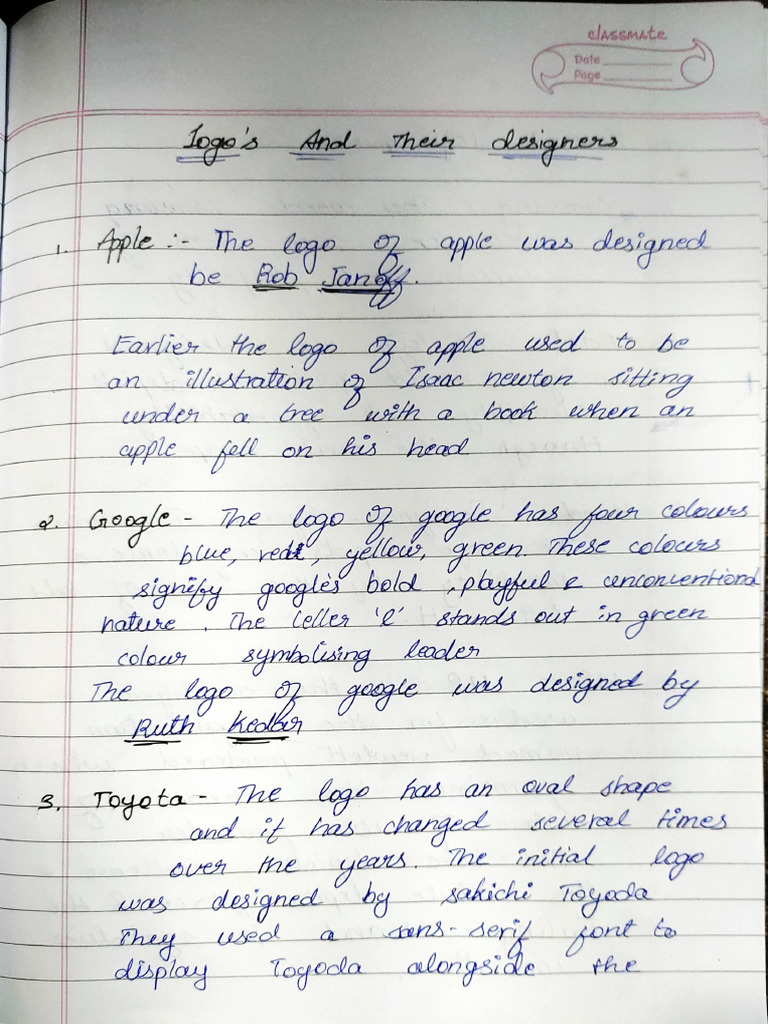 classmate
Date
Page
Logo's And Their designers
1. Apple :- The logo of apple was designed
be Rob Janoff.
Earlier the logo of apple used to be
an illustration of Isaac newton sitting
under a tree with a book when an
apple fell on his head
2. Google - The logo of google has four colours
blue, red, yellow, green. These colours
signify google's bold, playful & unconventional
nature. The letter 'l' stands out in green
colour symbolising leader
The logo of google was designed by
Ruth Kedar
3. Toyota - The logo has an oval shape
and it has changed several times
over the years. The initial logo
was designed by sakichi Toyoda
They used a sans-serif font to
display Toyoda alongside the